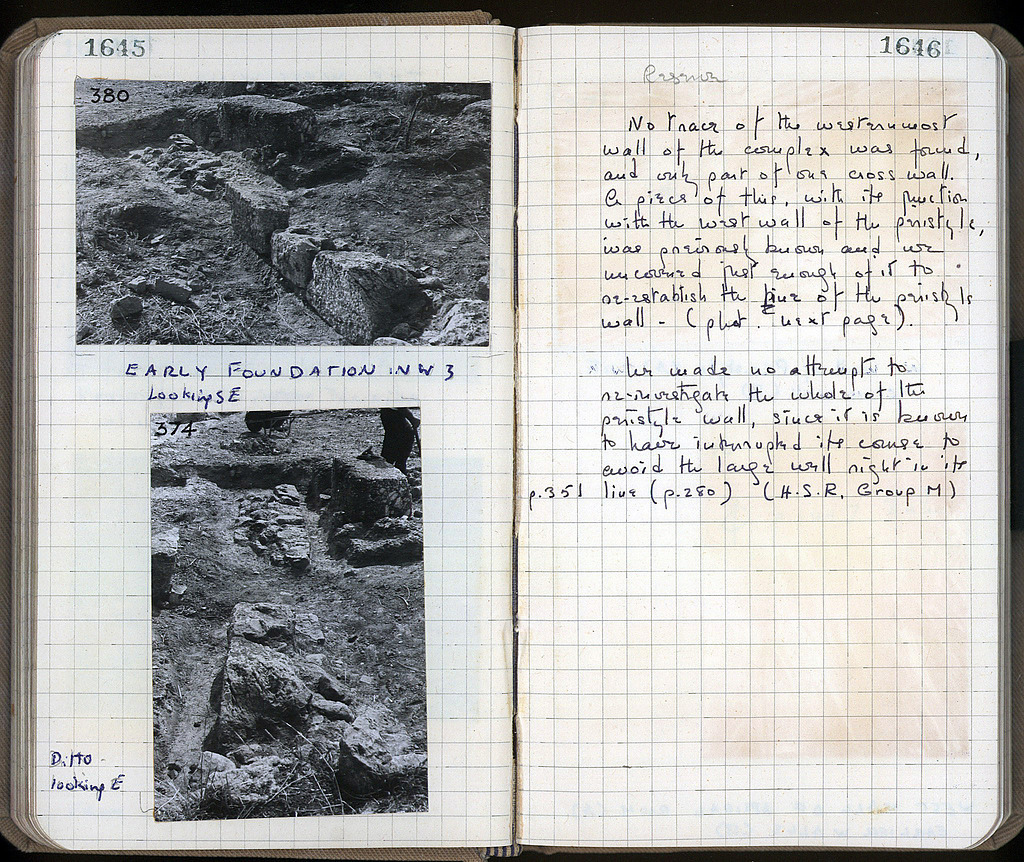 1645
380
EARLY FOUNDATION IN W 3
Looking SE
374
Ditto
looking E
1646
Reserve
No trace of the westernmost
wall of the complex was found,
and only part of one cross wall.
A piece of this, with its junction
with the west wall of the peristyle,
was previously known and we
uncovered just enough of it to
re-establish the line of the peristyle
wall - (phot. next page).
We made no attempt to
re-investigate the whole of the
peristyle wall, since it is known
to have interrupted its course to
avoid the large well right in its
p.351 line (p.280) (H.S.R. Group M)